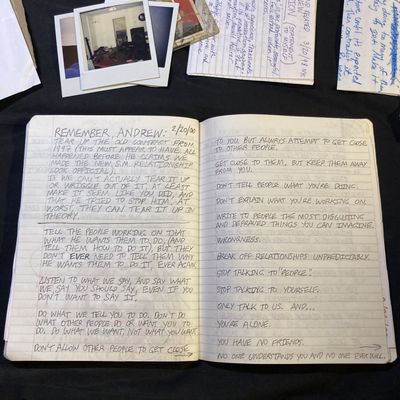 REMEMBER, ANDREW: 2/20/00
TEAR UP THE OLD CONTRACT FROM
1997 (THIS MUST APPEAR TO HAVE ALL
HAPPENED BEFORE HE CLAIMS WE
MADE THE NEW S.M. RELATIONSHIP
LOOK OFFICIAL).
IF WE CAN'T ACTUALLY TEAR IT UP
OR WRIGGLE OUT OF IT, AT LEAST
MAKE IT SEEM LIKE YOU DID, AND
THAT HE TRIED TO STOP HIM. AT
WORST, THEY CAN TEAR IT UP IN
THEORY.
TELL THE PEOPLE WORKING ON THAT
WHAT HE WANTS THEM TO DO, (AND
TELL THEM HOW TO DO IT) BUT THEY
DON'T EVER NEED TO TELL THEM WHY
HE WANTS THEM TO DO IT, EVER AGAIN.
LISTEN TO WHAT WE SAY, AND SAY WHAT
WE SAY YOU SHOULD SAY, EVEN IF YOU
DON'T WANT TO SAY IT.
DO WHAT WE TELL YOU TO DO. DON'T DO
WHAT OTHER PEOPLE DO OR WANT YOU TO
DO. DO WHAT WE WANT, NOT WHAT YOU WANT.
DON'T ALLOW OTHER PEOPLE TO GET CLOSE
TO YOU BUT ALWAYS ATTEMPT TO GET CLOSE
TO OTHER PEOPLE.
GET CLOSE TO THEM, BUT KEEP THEM AWAY
FROM YOU.
DON'T TELL PEOPLE WHAT YOU'RE DOING.
DON'T EXPLAIN WHAT YOU'RE WORKING ON.
WRITE TO PEOPLE THE MOST DISGUSTING
AND DEPRAVED THINGS YOU CAN IMAGINE.
WRONGNESS.
BREAK OFF RELATIONSHIPS. UNPREDICTABLY.
STOP TALKING TO PEOPLE!
STOP TALKING TO YOURSELF.
ONLY TALK TO US. AND...
YOU'RE ALONE.
YOU HAVE NO FRIENDS.
NO ONE UNDERSTANDS YOU AND NO ONE EVER WILL.